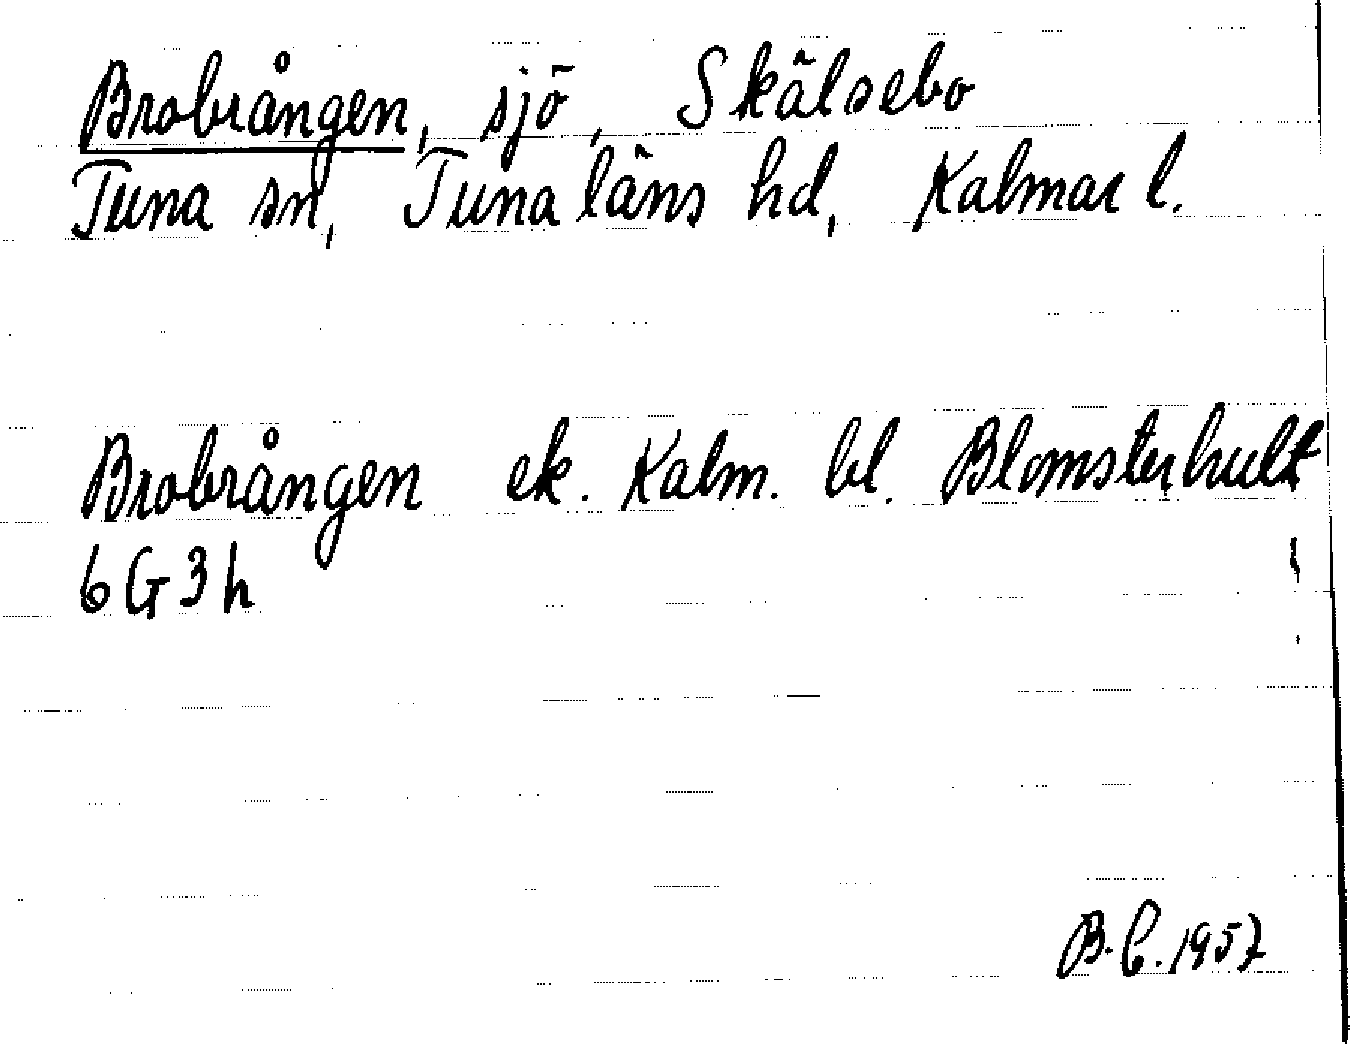 Brobrången, sjö, Skälsebo
Tuna sn, Tunaläns hd, Kalmar l.
Brobrången ek. Kalm. bl. Blomsterhult
6G3h
B.C. 1957